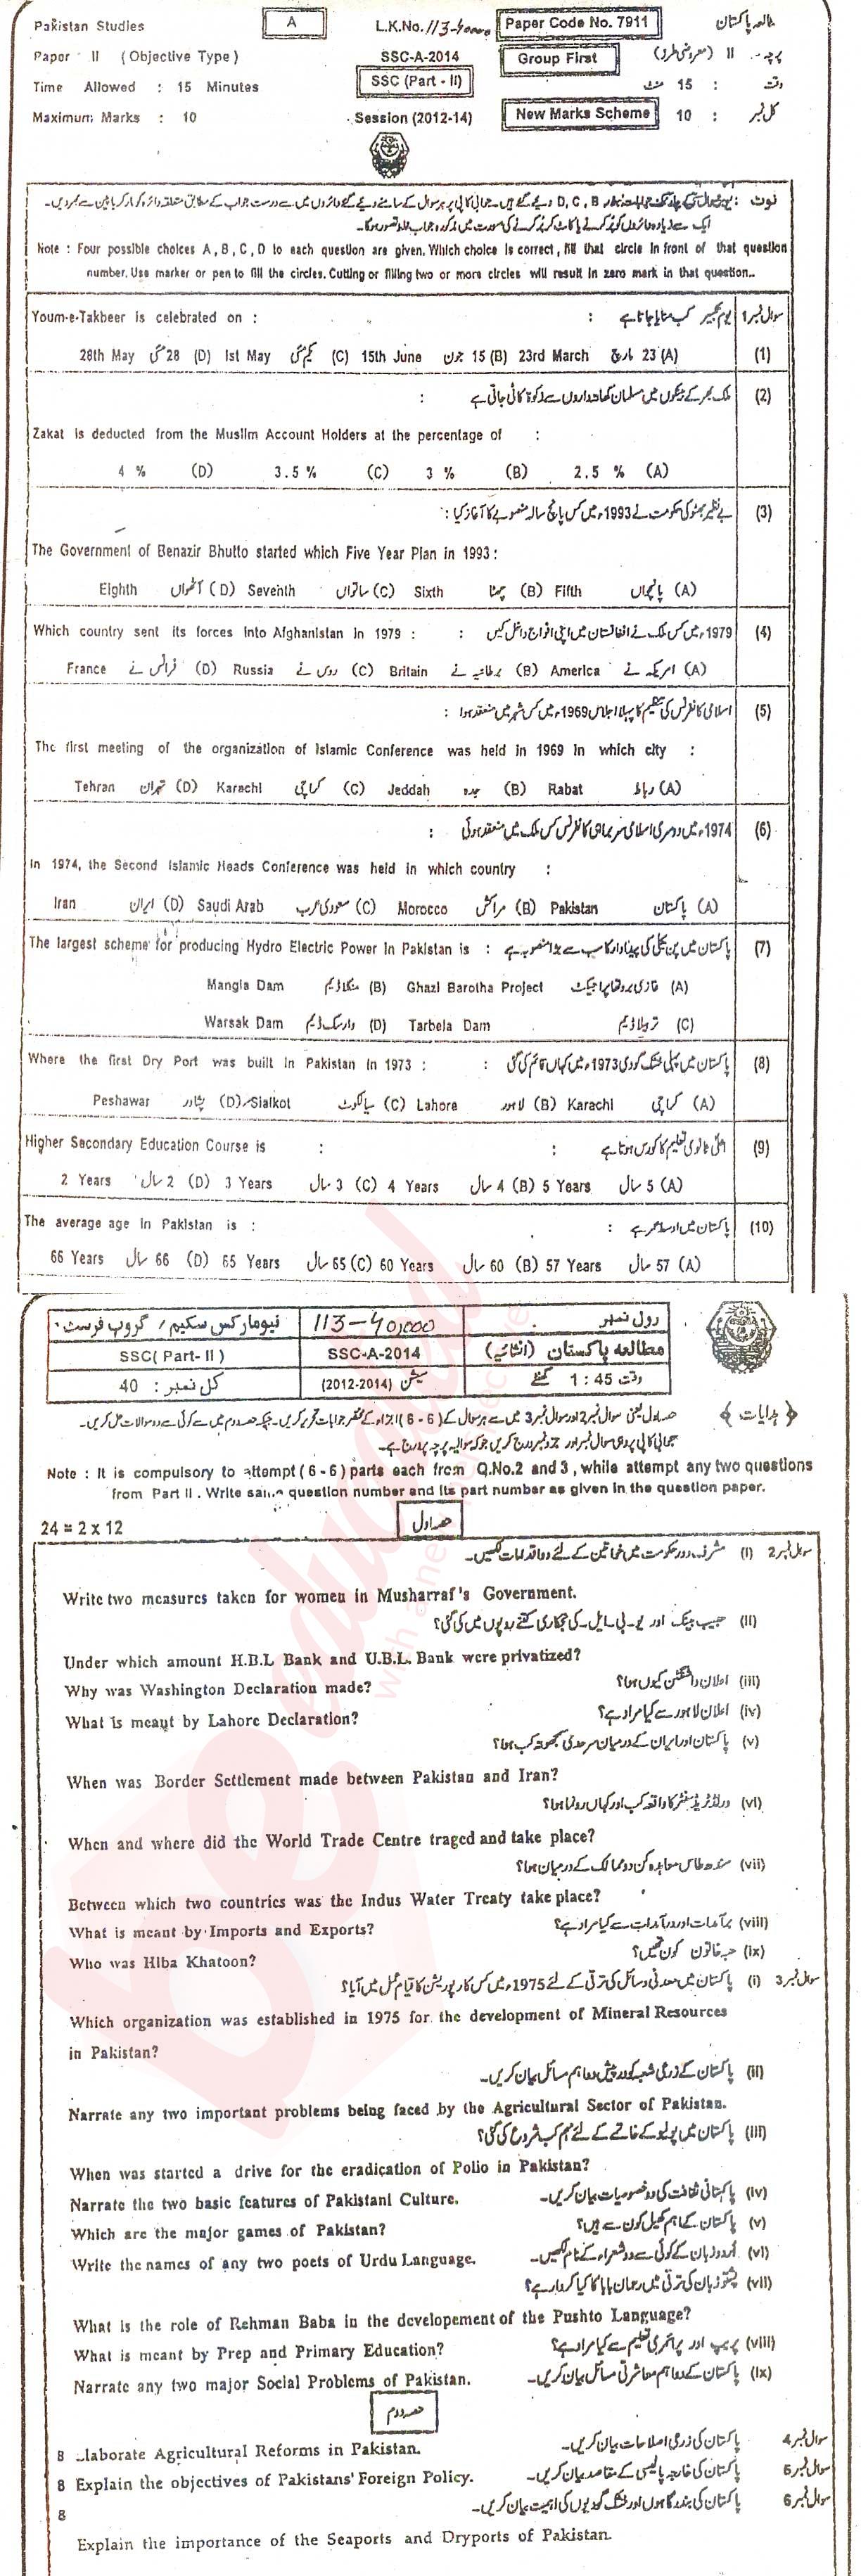 Pakistan Studies A L.K.No. 113-40000 Paper Code No. 7911 مطالعہ پاکستان
Paper II (Objective Type) SSC-A-2014 Group First پرچہ II (معروضی طرز)
Time Allowed : 15 Minutes SSC (Part - II) وقت : 15 منٹ
Maximum Marks : 10 Session (2012-14) New Marks Scheme کل نمبر : 10
نوٹ :
Note : Four possible choices A, B, C, D to each question are given. Which choice is correct, fill that circle in front of that question
number. Use marker or pen to fill the circles. Cutting or filling two or more circles will result in zero mark in that question..
Youm-e-Takbeer is celebrated on : یوم تکبیر کب منایا جاتا ہے : سوال نمبر 1
28th May 28 مئی (D) Ist May یکم مئی (C) 15th June 15 جون (B) 23rd March 23 مارچ (A) (1)
ملک بھر کے بینکوں میں مسلمان کھاتہ داروں سے زکوٰۃ کاٹی جاتی ہے : (2)
Zakat is deducted from the Muslim Account Holders at the percentage of :
4 % (D) 3.5 % (C) 3 % (B) 2.5 % (A)
بے نظیر بھٹو کی حکومت نے 1993ء میں کس پانچ سالہ منصوبے کا آغاز کیا : (3)
The Government of Benazir Bhutto started which Five Year Plan in 1993 :
Eighth آٹھواں (D) Seventh ساتواں (C) Sixth چھٹا (B) Fifth پانچواں (A)
Which country sent its forces into Afghanistan in 1979 : 1979ء میں کس ملک نے افغانستان میں اپنی افواج داخل کیں : (4)
France فرانس نے (D) Russia روس نے (C) Britain برطانیہ نے (B) America امریکہ نے (A)
اسلامی کانفرنس کی تنظیم کا پہلا اجلاس 1969ء میں کس شہر میں منعقد ہوا : (5)
The first meeting of the organization of Islamic Conference was held in 1969 in which city :
Tehran تہران (D) Karachi کراچی (C) Jeddah جدہ (B) Rabat رباط (A)
1974ء میں دوسری اسلامی سربراہی کانفرنس کس ملک میں منعقد ہوئی : (6)
In 1974, the Second Islamic Heads Conference was held in which country :
Iran ایران (D) Saudi Arab سعودی عرب (C) Morocco مراکش (B) Pakistan پاکستان (A)
The largest scheme for producing Hydro Electric Power in Pakistan is : پاکستان میں پن بجلی کی پیداوار کا سب سے بڑا منصوبہ ہے (7)
Mangla Dam منگلا ڈیم (B) Ghazi Barotha Project غازی بروتھا پراجیکٹ (A)
Warsak Dam وارسک ڈیم (D) Tarbela Dam تربیلا ڈیم (C)
Where the first Dry Port was built in Pakistan in 1973 : پاکستان میں پہلی خشک گودی 1973ء میں کہاں قائم کی گئی : (8)
Peshawar پشاور (D) Sialkot سیالکوٹ (C) Lahore لاہور (B) Karachi کراچی (A)
Higher Secondary Education Course is : اعلیٰ ثانوی تعلیم کا کورس ہوتا ہے : (9)
2 Years 2 سال (D) 3 Years 3 سال (C) 4 Years 4 سال (B) 5 Years 5 سال (A)
The average age in Pakistan is : پاکستان میں اوسط عمر ہے : (10)
66 Years 66 سال (D) 65 Years 65 سال (C) 60 Years 60 سال (B) 57 Years 57 سال (A)
نیو مارکس سکیم / گروپ فرسٹ 113-40000 رول نمبر
SSC( Part- II ) SSC-A-2014 مطالعہ پاکستان (انشائیہ)
کل نمبر : 40 سیشن (2012-2014) وقت 1 : 45 گھنٹے
﴿ ہدایات ﴾
Note : It is compulsory to attempt ( 6 - 6 ) parts each from Q.No.2 and 3 , while attempt any two questions
from Part II . Write same question number and its part number as given in the question paper.
24 = 2 x 12 حصہ اول
سوال نمبر 2 (i) مشرف دور حکومت میں خواتین کے لئے دو اقدامات لکھیں۔
Write two measures taken for women in Musharraf's Government.
(ii) حبیب بینک اور یو۔بی۔ایل۔ کی نجکاری کتنے روپوں میں کی گئی؟
Under which amount H.B.L Bank and U.B.L. Bank were privatized?
Why was Washington Declaration made? (iii) اعلان واشنگٹن کیوں ہوا؟
What is meant by Lahore Declaration? (iv) اعلان لاہور سے کیا مراد ہے؟
(v) پاکستان اور ایران کے درمیان سرحدی سمجھوتہ کب ہوا؟
When was Border Settlement made between Pakistan and Iran?
(vi) ورلڈ ٹریڈ سنٹر کا واقعہ کب اور کہاں رونما ہوا؟
When and where did the World Trade Centre traged and take place?
(vii) سندھ طاس معاہدہ کن دو ممالک کے درمیان ہوا؟
Between which two countries was the Indus Water Treaty take place?
What is meant by Imports and Exports? (viii) برآمدات اور درآمدات سے کیا مراد ہے؟
Who was Hiba Khatoon? (ix) حبہ خاتون کون تھیں؟
سوال نمبر 3 (i) پاکستان میں معدنی وسائل کی ترقی کے لئے 1975ء میں کس کارپوریشن کا قیام عمل میں آیا؟
Which organization was established in 1975 for the development of Mineral Resources
in Pakistan?
(ii) پاکستان کے زرعی شعبہ کو درپیش دو اہم مسائل بیان کریں۔
Narrate any two important problems being faced by the Agricultural Sector of Pakistan.
(iii) پاکستان میں پولیو کے خاتمے کے لئے مہم کب شروع کی گئی؟
When was started a drive for the eradication of Polio in Pakistan?
Narrate the two basic features of Pakistani Culture. (iv) پاکستانی ثقافت کی دو خصوصیات بیان کریں۔
Which are the major games of Pakistan? (v) پاکستان کے اہم کھیل کون سے ہیں؟
Write the names of any two poets of Urdu Language. (vi) اُردو زبان کے کوئی سے دو شعراء کے نام لکھیں۔
(vii) پشتو زبان کی ترقی میں رحمان بابا کا کیا کردار ہے؟
What is the role of Rehman Baba in the developement of the Pushto Language?
What is meant by Prep and Primary Education? (viii) پریپ اور پرائمری تعلیم سے کیا مراد ہے؟
Narrate any two major Social Problems of Pakistan. (ix) پاکستان کے دو اہم معاشرتی مسائل بیان کریں۔
حصہ دوم
8 Elaborate Agricultural Reforms in Pakistan. پاکستان کی زرعی اصلاحات بیان کریں۔ سوال نمبر 4
8 Explain the objectives of Pakistans' Foreign Policy. پاکستان کی خارجہ پالیسی کے مقاصد بیان کریں۔ سوال نمبر 5
8 پاکستان کی بندرگاہوں اور خشک گودیوں کی اہمیت بیان کریں۔ سوال نمبر 6
Explain the importance of the Seaports and Dryports of Pakistan.